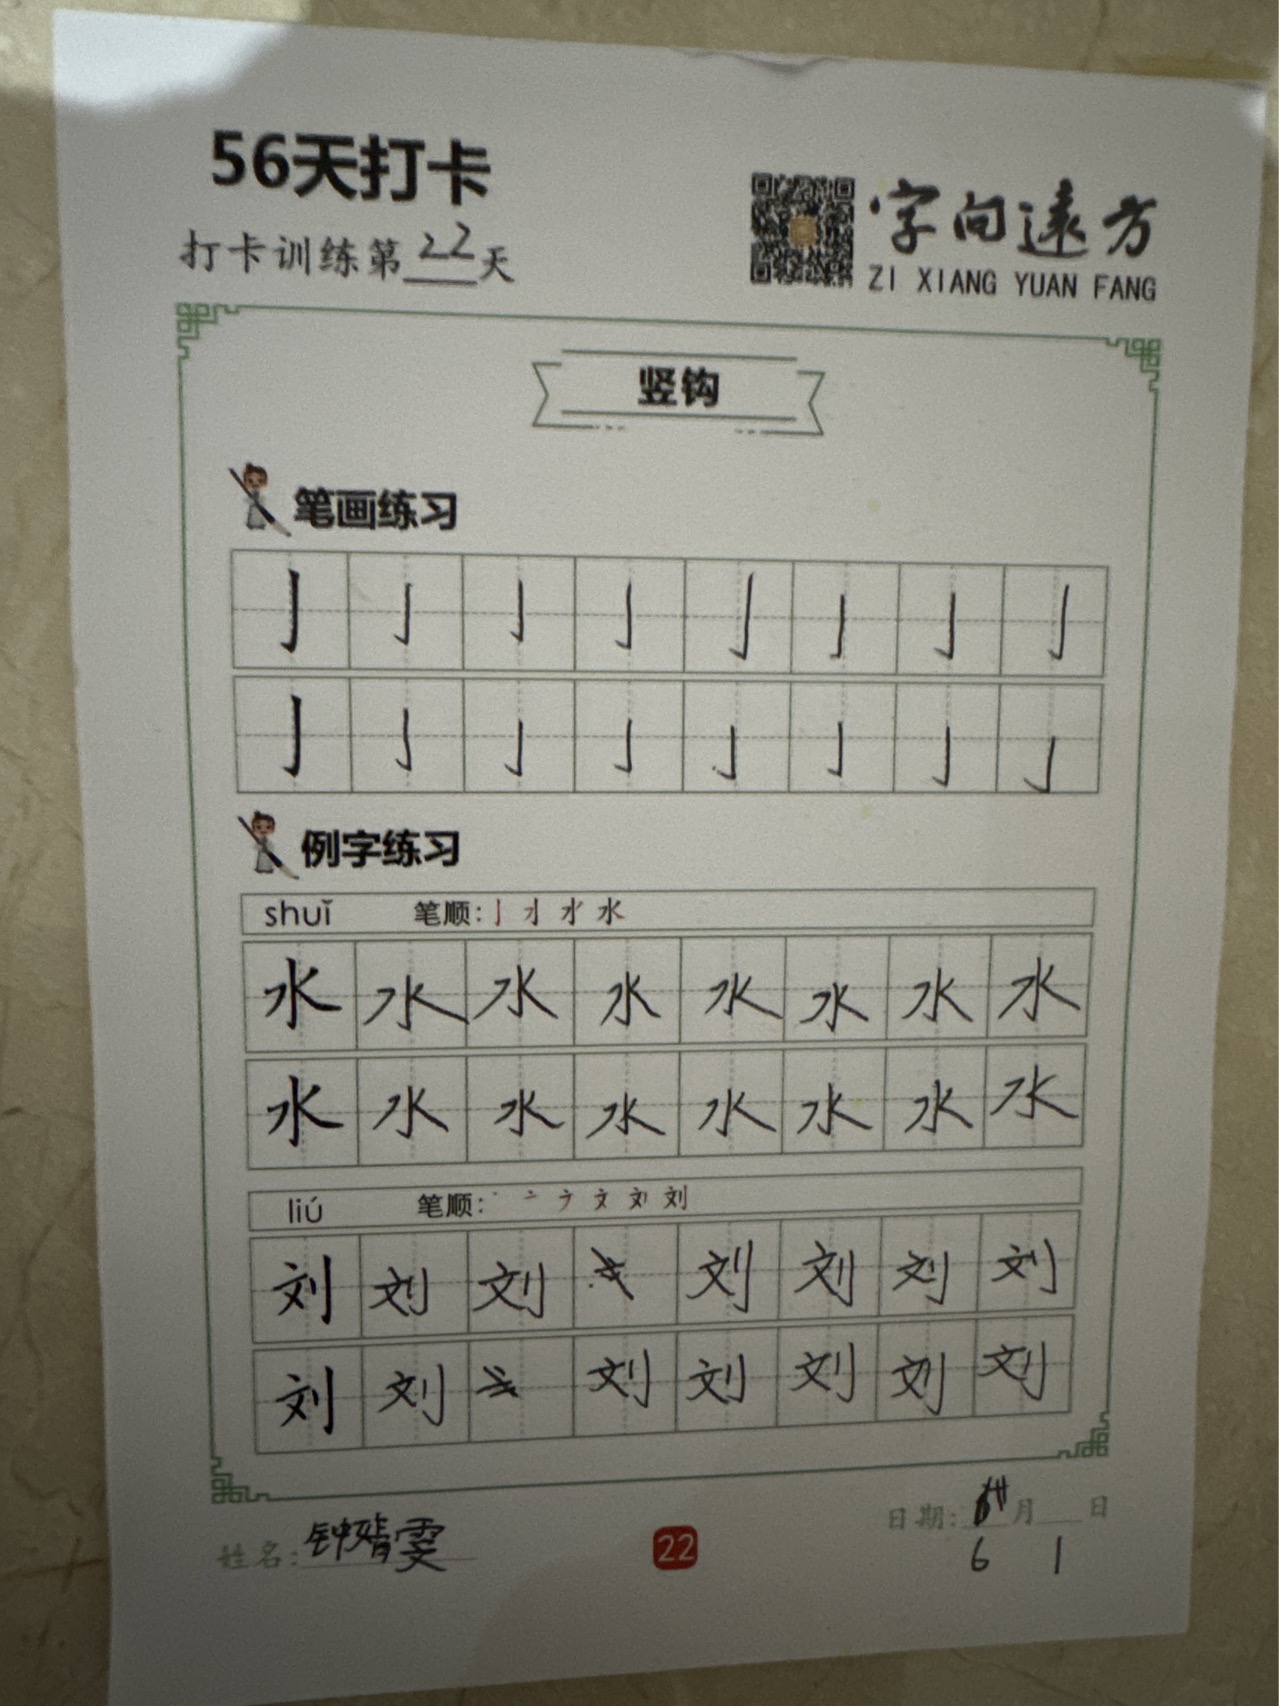 56天打卡
打卡训练第22天
字向遠方
ZI XIANG YUAN FANG
竖钩
笔画练习
亅 亅 亅 亅 亅 亅 亅 亅
亅 亅 亅 亅 亅 亅 亅 亅
例字练习
shuǐ 笔顺:
水 水 水 水 水 水 水 水
水 水 水 水 水 水 水 水
liú 笔顺:
刘 刘 刘 刘 刘 刘 刘
刘 刘 刘 刘 刘 刘 刘
姓名:钟婧雯
22
日期: 月 日
6 1